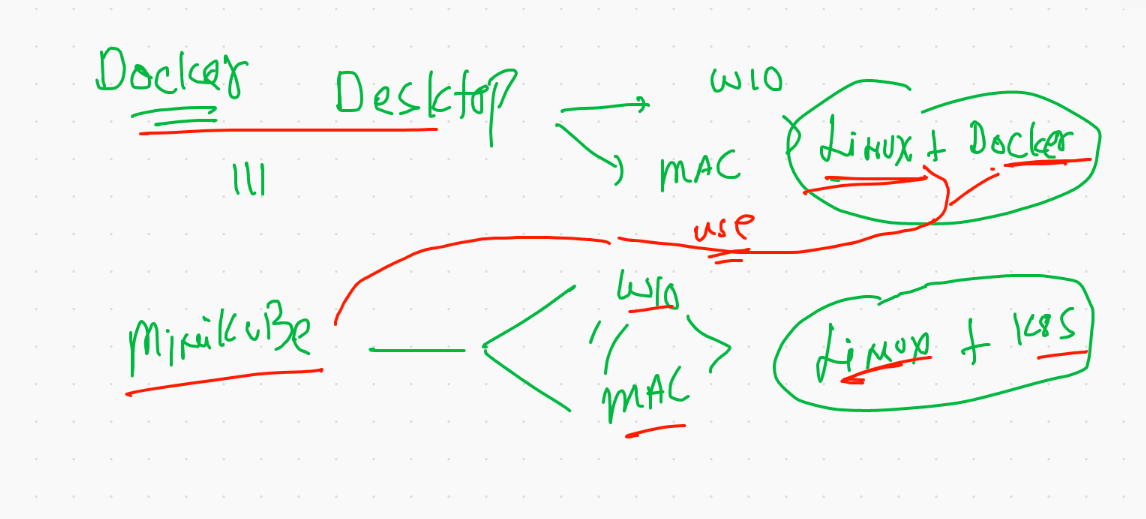 Docker Desktop
W10
MAC
Linux + Docker
use
Minikube
W10
MAC
Linux + K8S